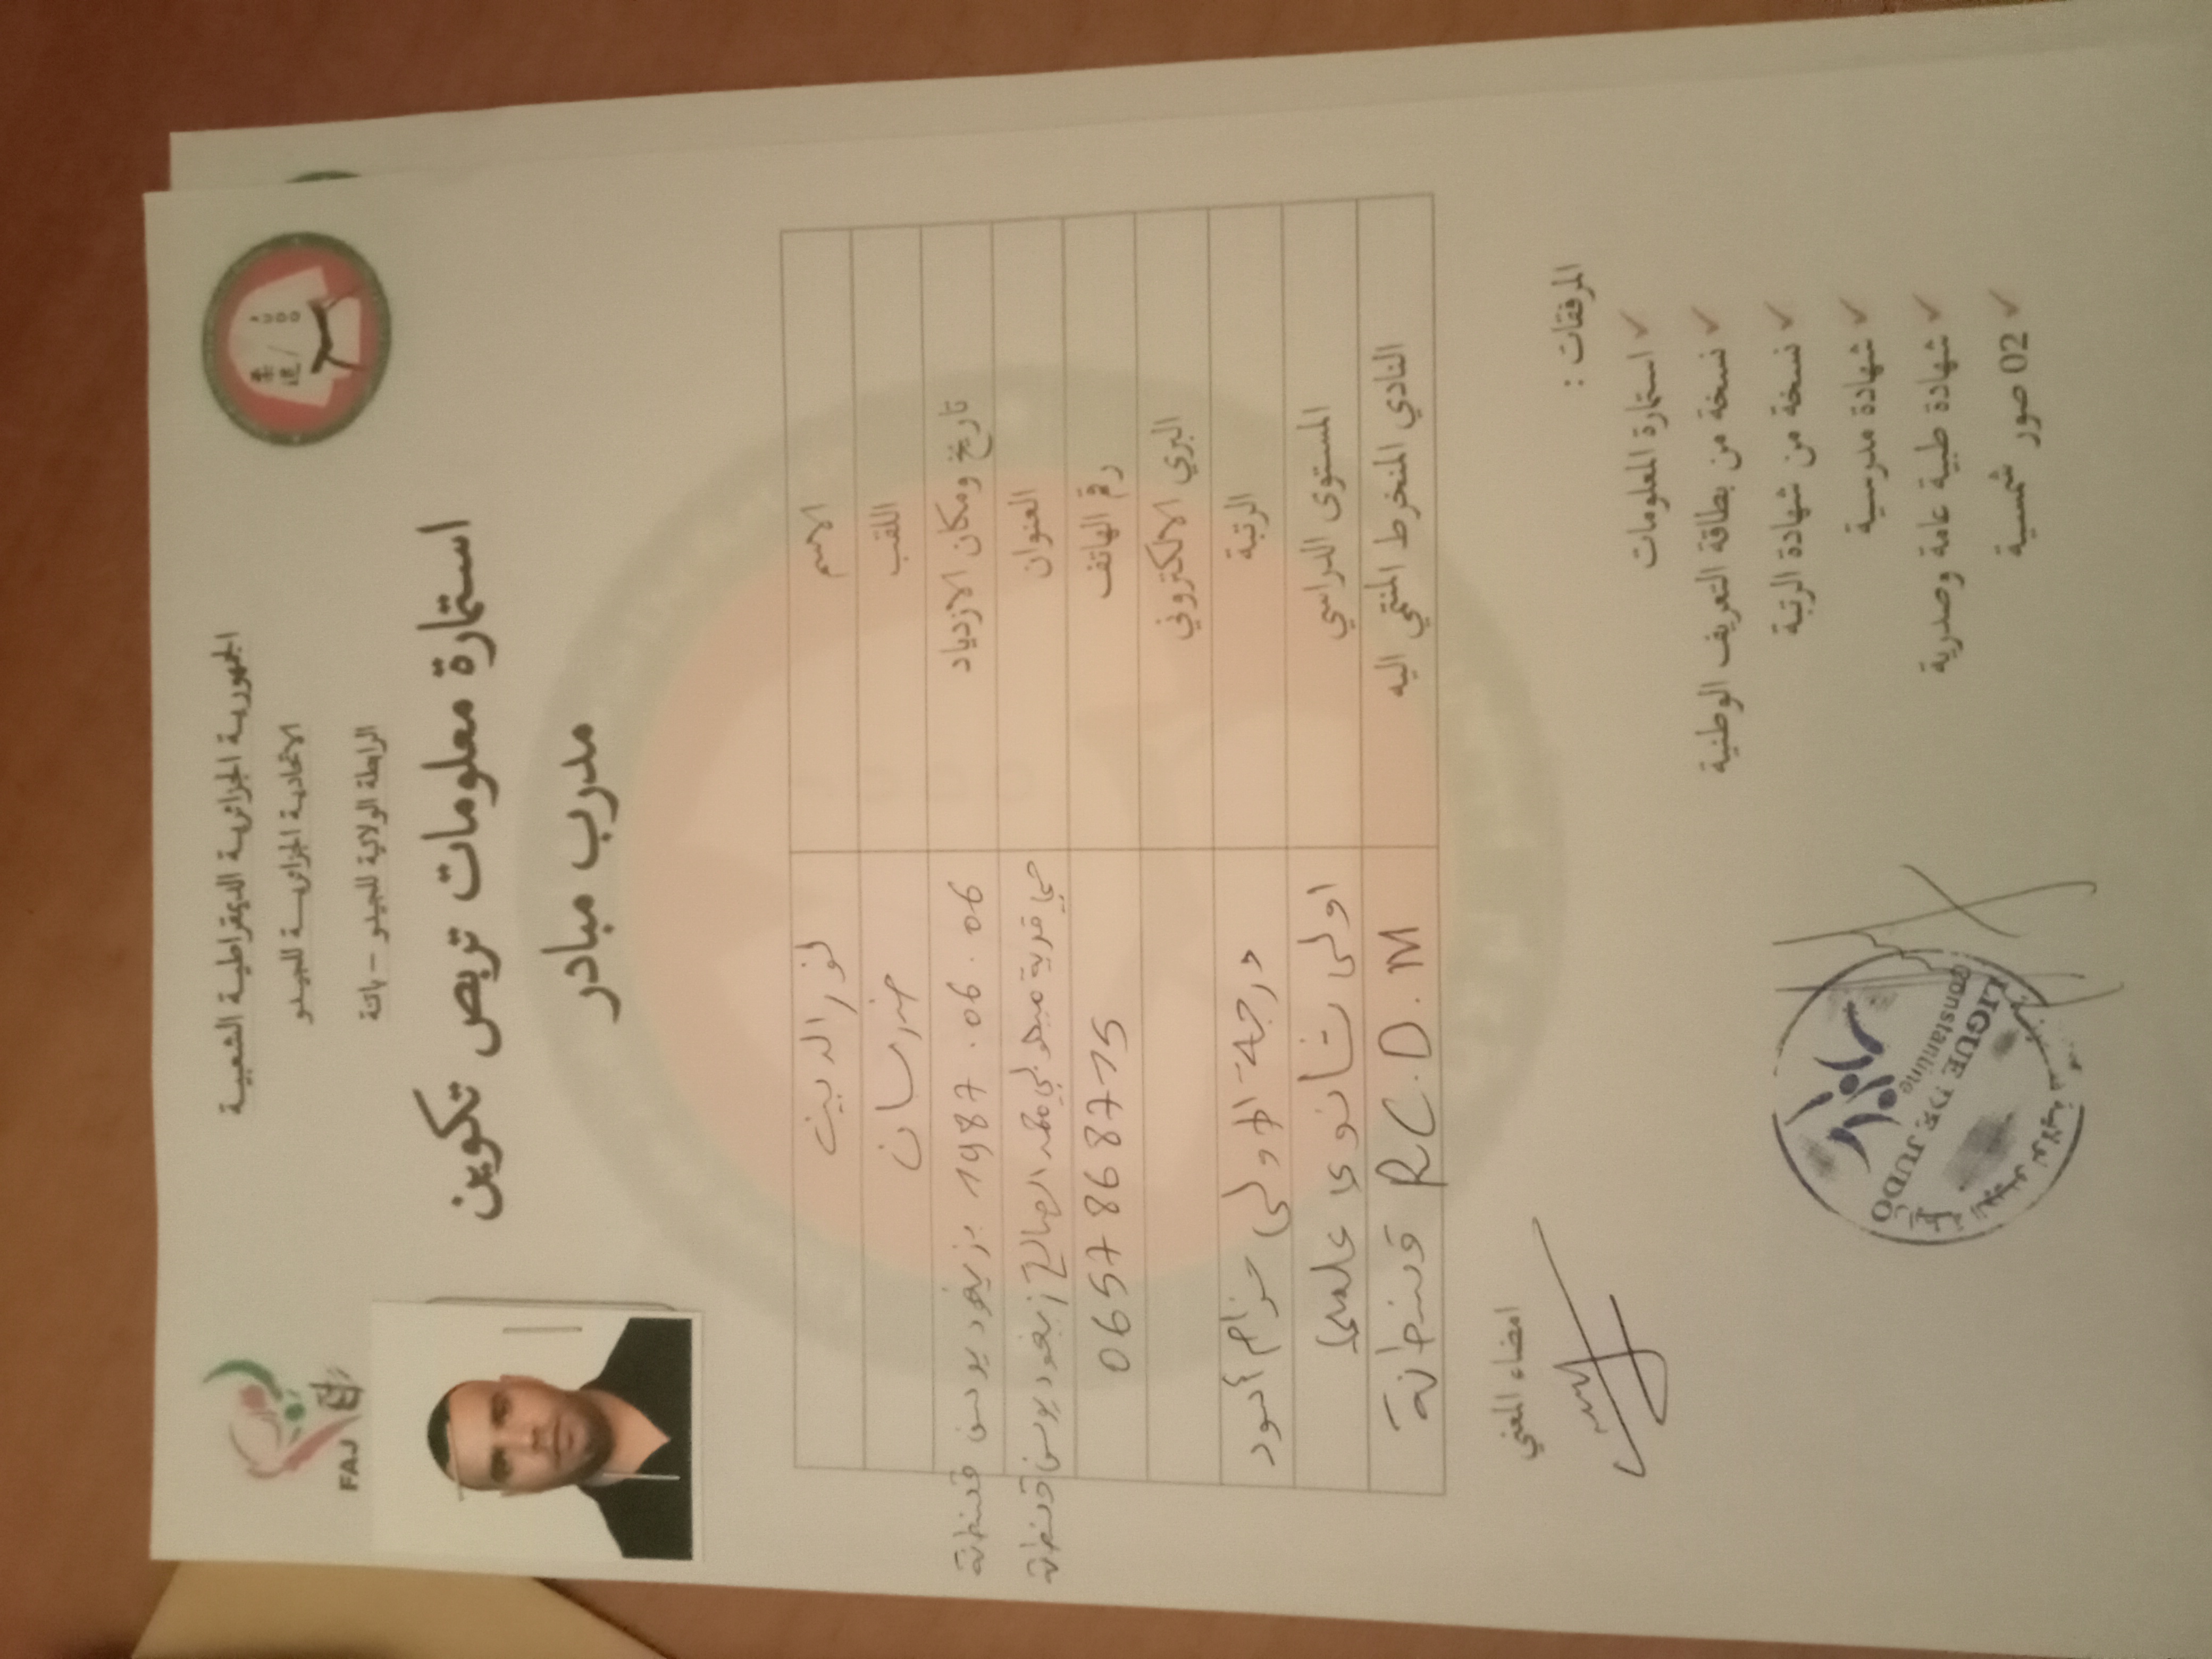 الجمهورية الجزائرية الديمقراطية الشعبية
الاتحادية الجزائرية للجيدو
الرابطة الولائية للجيدو – باتنة
FAJ
JUDO
柔道
استمارة معلومات تربص تكوين
مدرب مبادر
الاسم نور الدين
اللقب
تاريخ ومكان الازدياد 06.06.1987 بزيغود يوسف قسنطينة
العنوان حي قرية الصالح زيغود يوسف قسنطينة
رقم الهاتف 0657868715
البري الالكتروني
الرتبة درجة الأولى حزام أسود
المستوى الدراسي اولى ثانوي علمي
النادي المنخرط المنتمي اليه R.C.D.M قسنطينة
امضاء المعني
المرفقات :
✓ استمارة المعلومات
✓ نسخة من بطاقة التعريف الوطنية
✓ نسخة من شهادة الرتبة
✓ شهادة مدرسية
✓ شهادة طبية عامة وصدرية
✓ 02 صور شمسية
LIGUE DE JUDO
Constantine